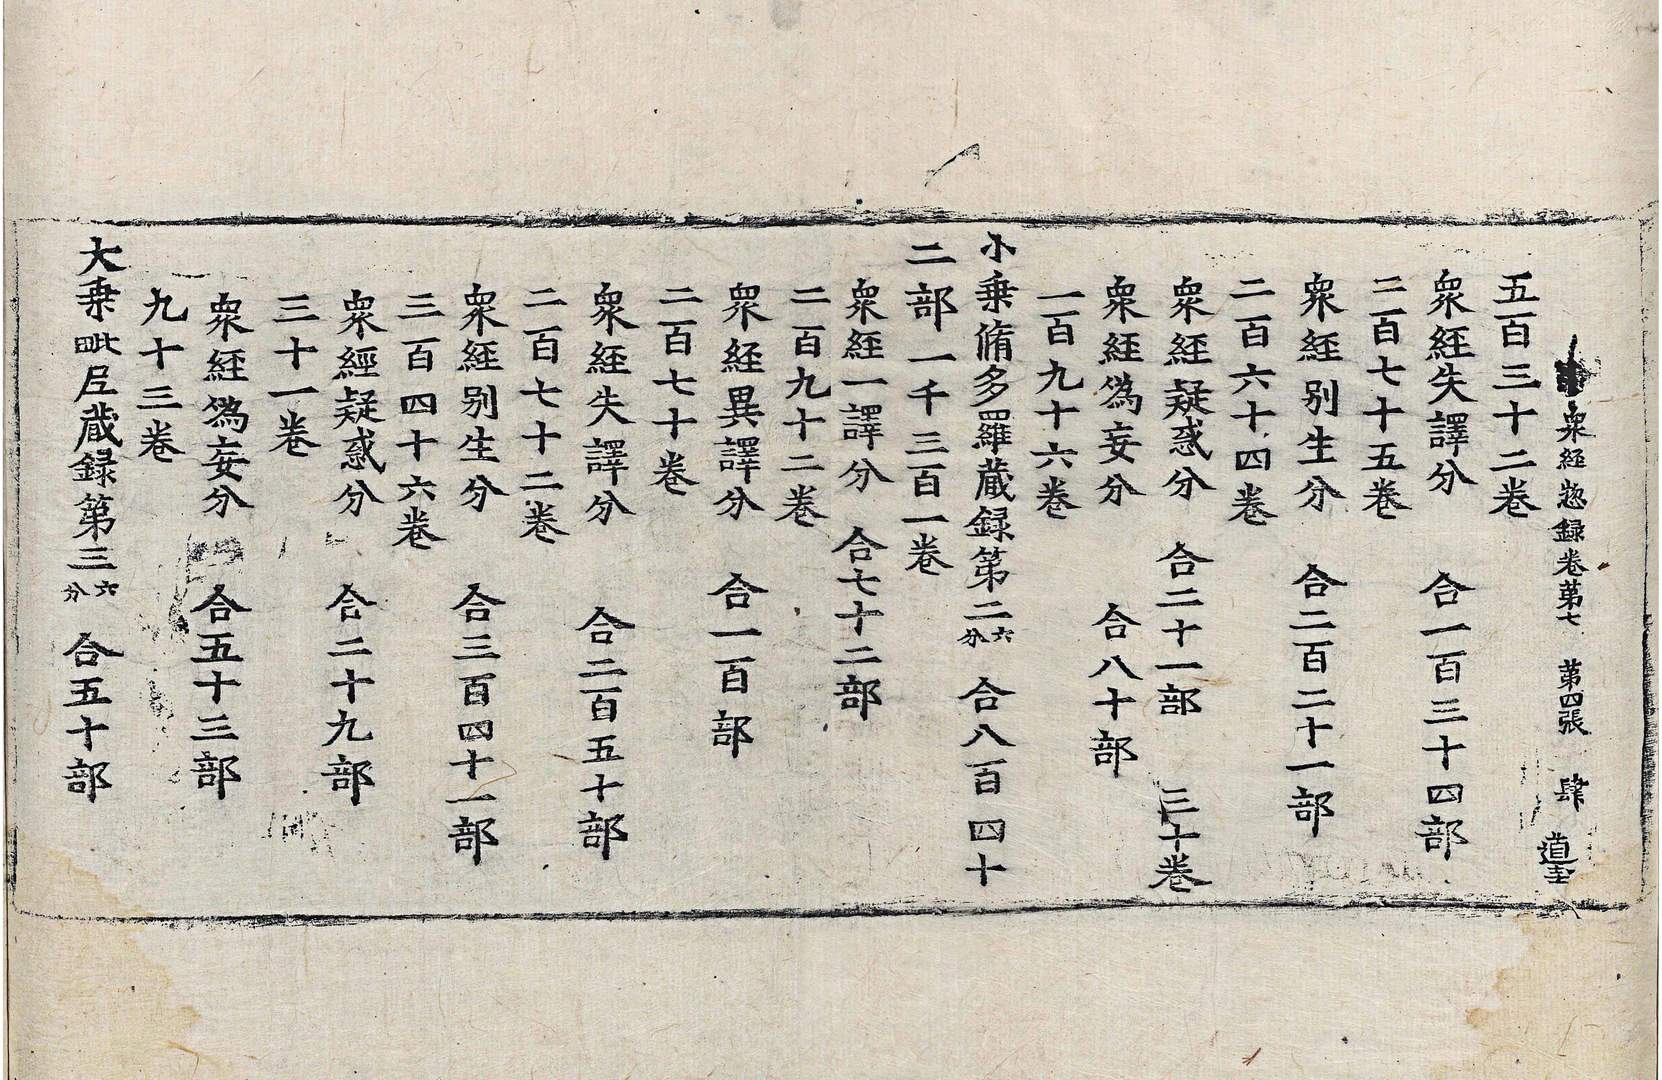 衆経惣録卷第七 第四張 肆 道
五百三十二卷
衆経失譯分 合一百三十四部
二百七十五卷
衆経别生分 合二百二十一部
二百六十四卷
衆経疑惑分 合二十一部 三十卷
衆経僞妄分 合八十部
一百九十六卷
小乗脩多羅蔵録第二六分 合八百四十
二部一千三百一卷
衆経一譯分 合七十二部
二百九十二卷
衆経異譯分 合一百部
二百七十卷
衆経失譯分 合二百五十部
二百七十二卷
衆経别生分 合三百四十一部
三百四十六卷
衆經疑惑分 合二十九部
三十一卷
衆経僞妄分 合五十三部
九十三卷
大乗毗尼蔵録第三六分 合五十部